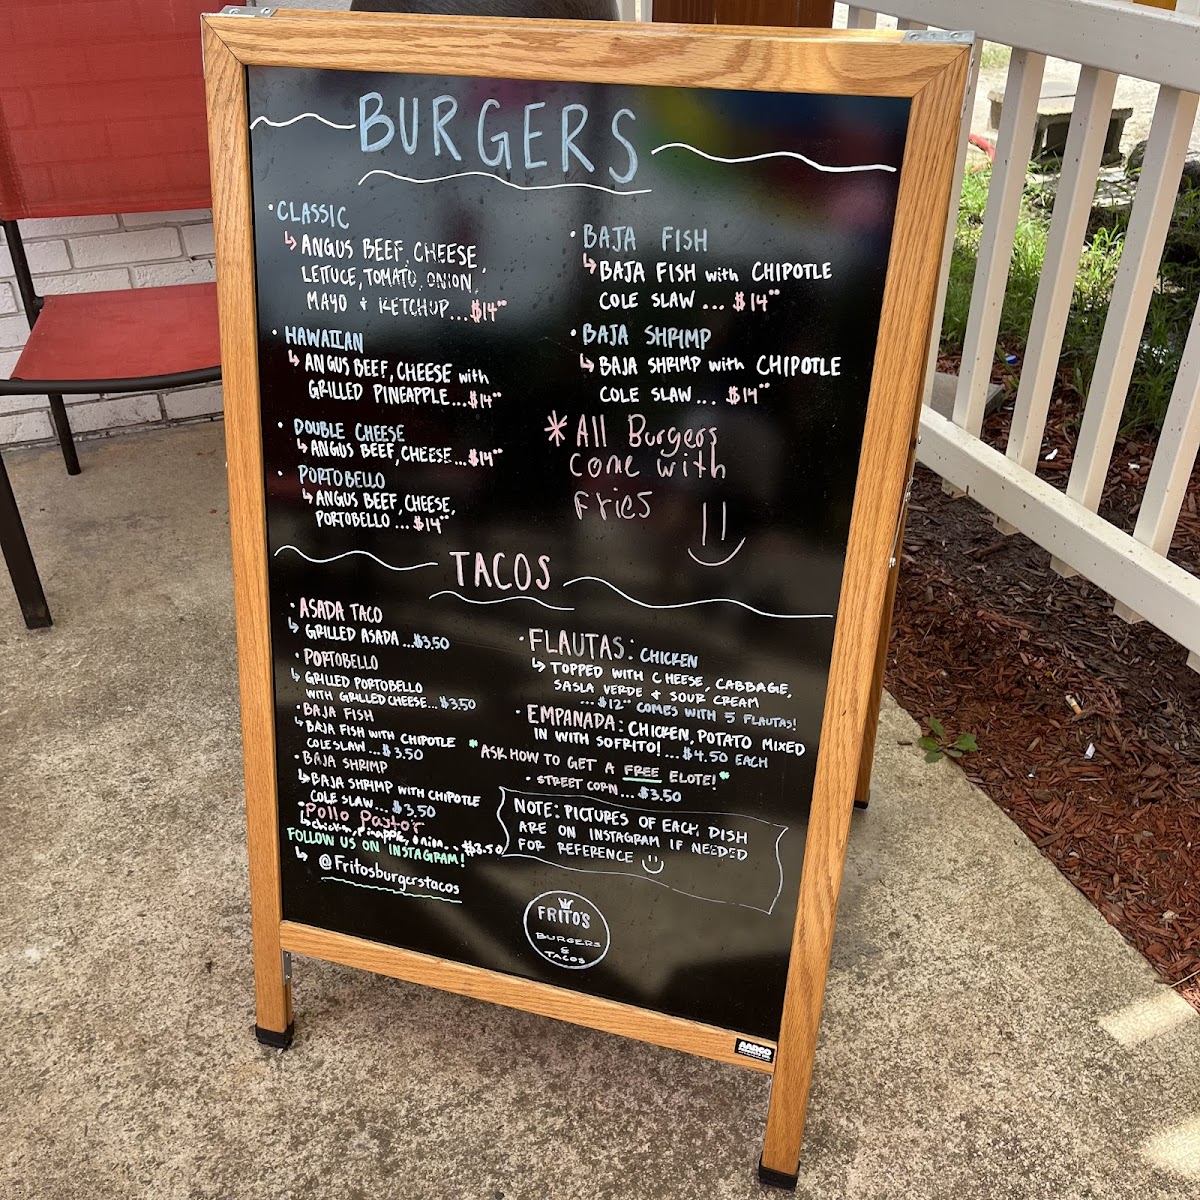 BURGERS
• CLASSIC
↳ ANGUS BEEF, CHEESE,
LETTUCE, TOMATO, ONION,
MAYO & KETCHUP...$14⁰⁰
• HAWAIIAN
↳ ANGUS BEEF, CHEESE with
GRILLED PINEAPPLE...$14⁰⁰
• DOUBLE CHEESE
↳ ANGUS BEEF, CHEESE...$14⁰⁰
• PORTOBELLO
↳ ANGUS BEEF, CHEESE,
PORTOBELLO...$14⁰⁰
• BAJA FISH
↳ BAJA FISH with CHIPOTLE
COLE SLAW... $14⁰⁰
• BAJA SHRIMP
↳ BAJA SHRIMP with CHIPOTLE
COLE SLAW... $14⁰⁰
*All Burgers
come with
fries
TACOS
• ASADA TACO
↳ GRILLED ASADA...$3.50
• PORTOBELLO
↳ GRILLED PORTOBELLO
WITH GRILLED CHEESE...$3.50
• BAJA FISH
↳ BAJA FISH WITH CHIPOTLE
COLE SLAW...$3.50
• BAJA SHRIMP
↳ BAJA SHRIMP WITH CHIPOTLE
COLE SLAW...$3.50
• Pollo Pastor
↳ chicken, Pineapple, onion...$3.50
FOLLOW US ON INSTAGRAM!
↳ @Fritosburgerstacos
• FLAUTAS: CHICKEN
↳ TOPPED WITH CHEESE, CABBAGE,
SASLA VERDE & SOUR CREAM
...$12⁰⁰ COMES WITH 5 FLAUTAS!
• EMPANADA: CHICKEN, POTATO MIXED
IN WITH SOFRITO!...$4.50 EACH
*ASK HOW TO GET A FREE ELOTE!*
• STREET CORN...$3.50
NOTE: PICTURES OF EACH DISH
ARE ON INSTAGRAM IF NEEDED
FOR REFERENCE
FRITO'S
BURGERS
&
TACOS
AARCO